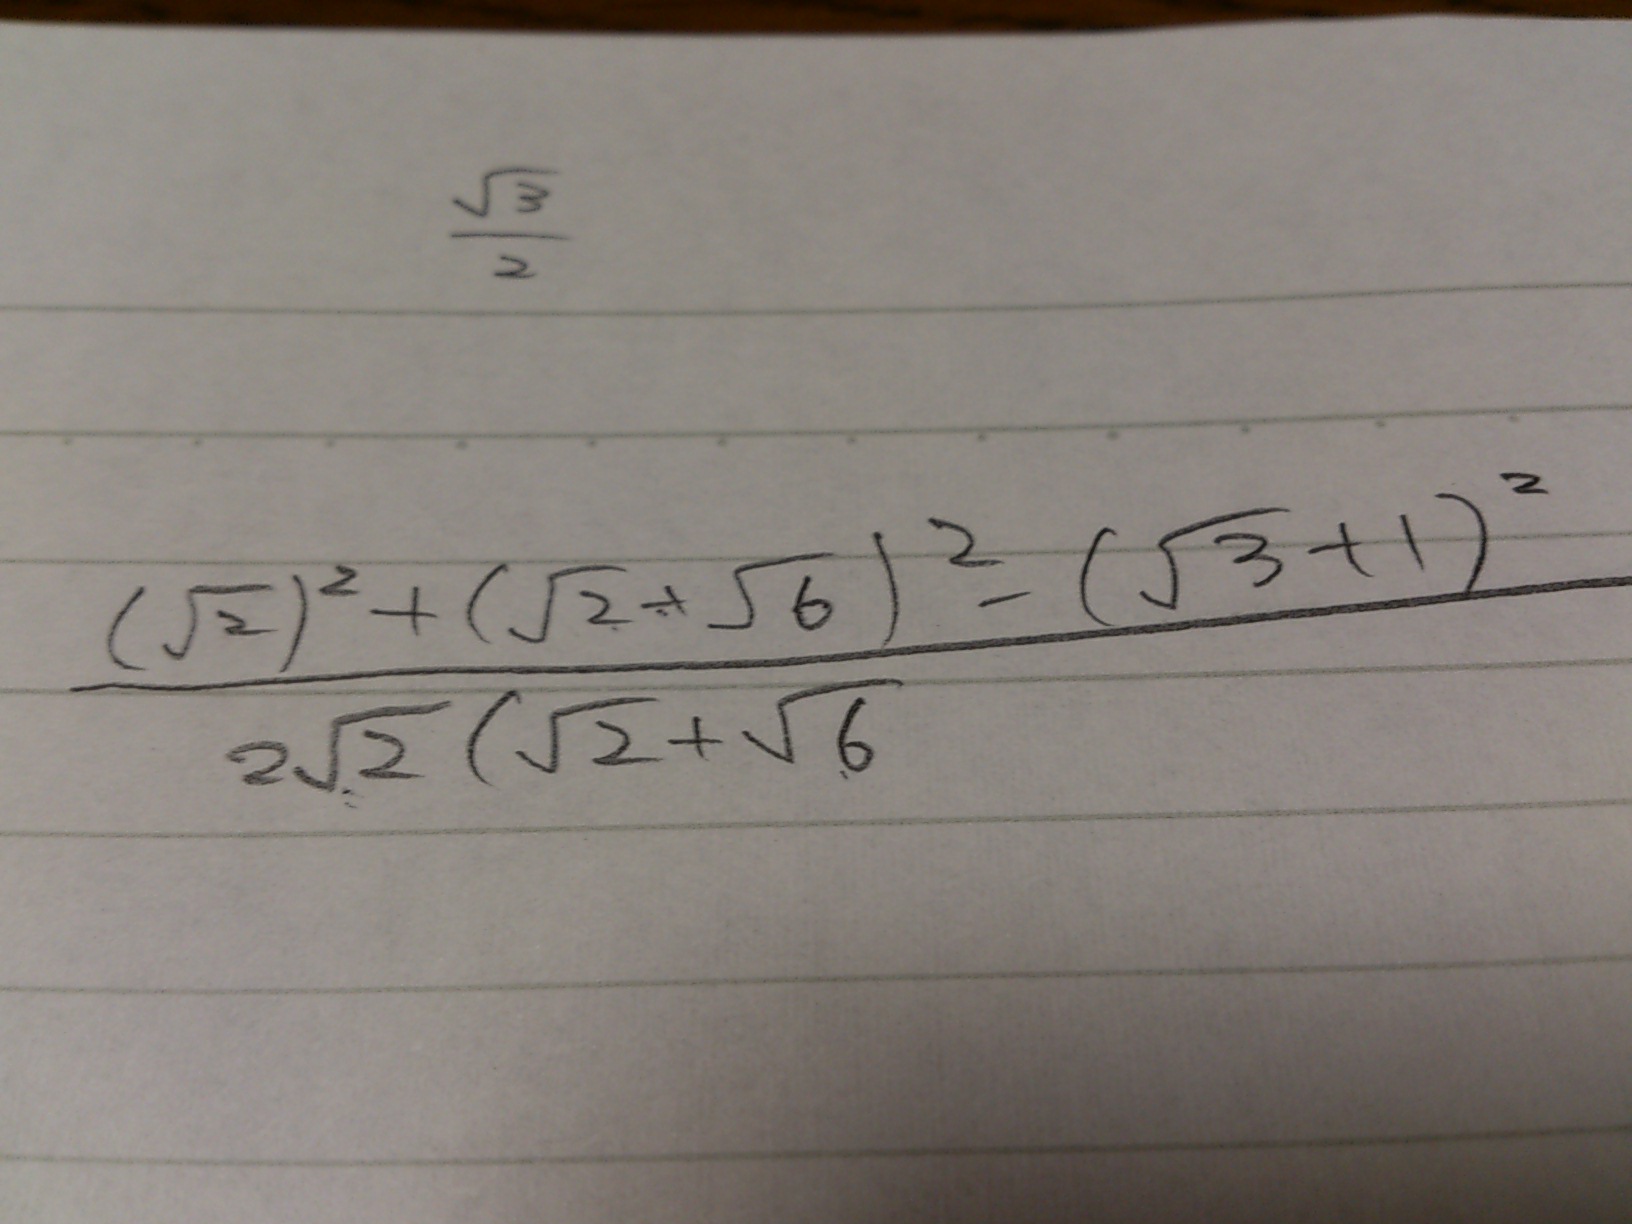 √3/2
(√2)² + (√2 + √6)² - (√3 + 1)²
2√2 (√2 + √6